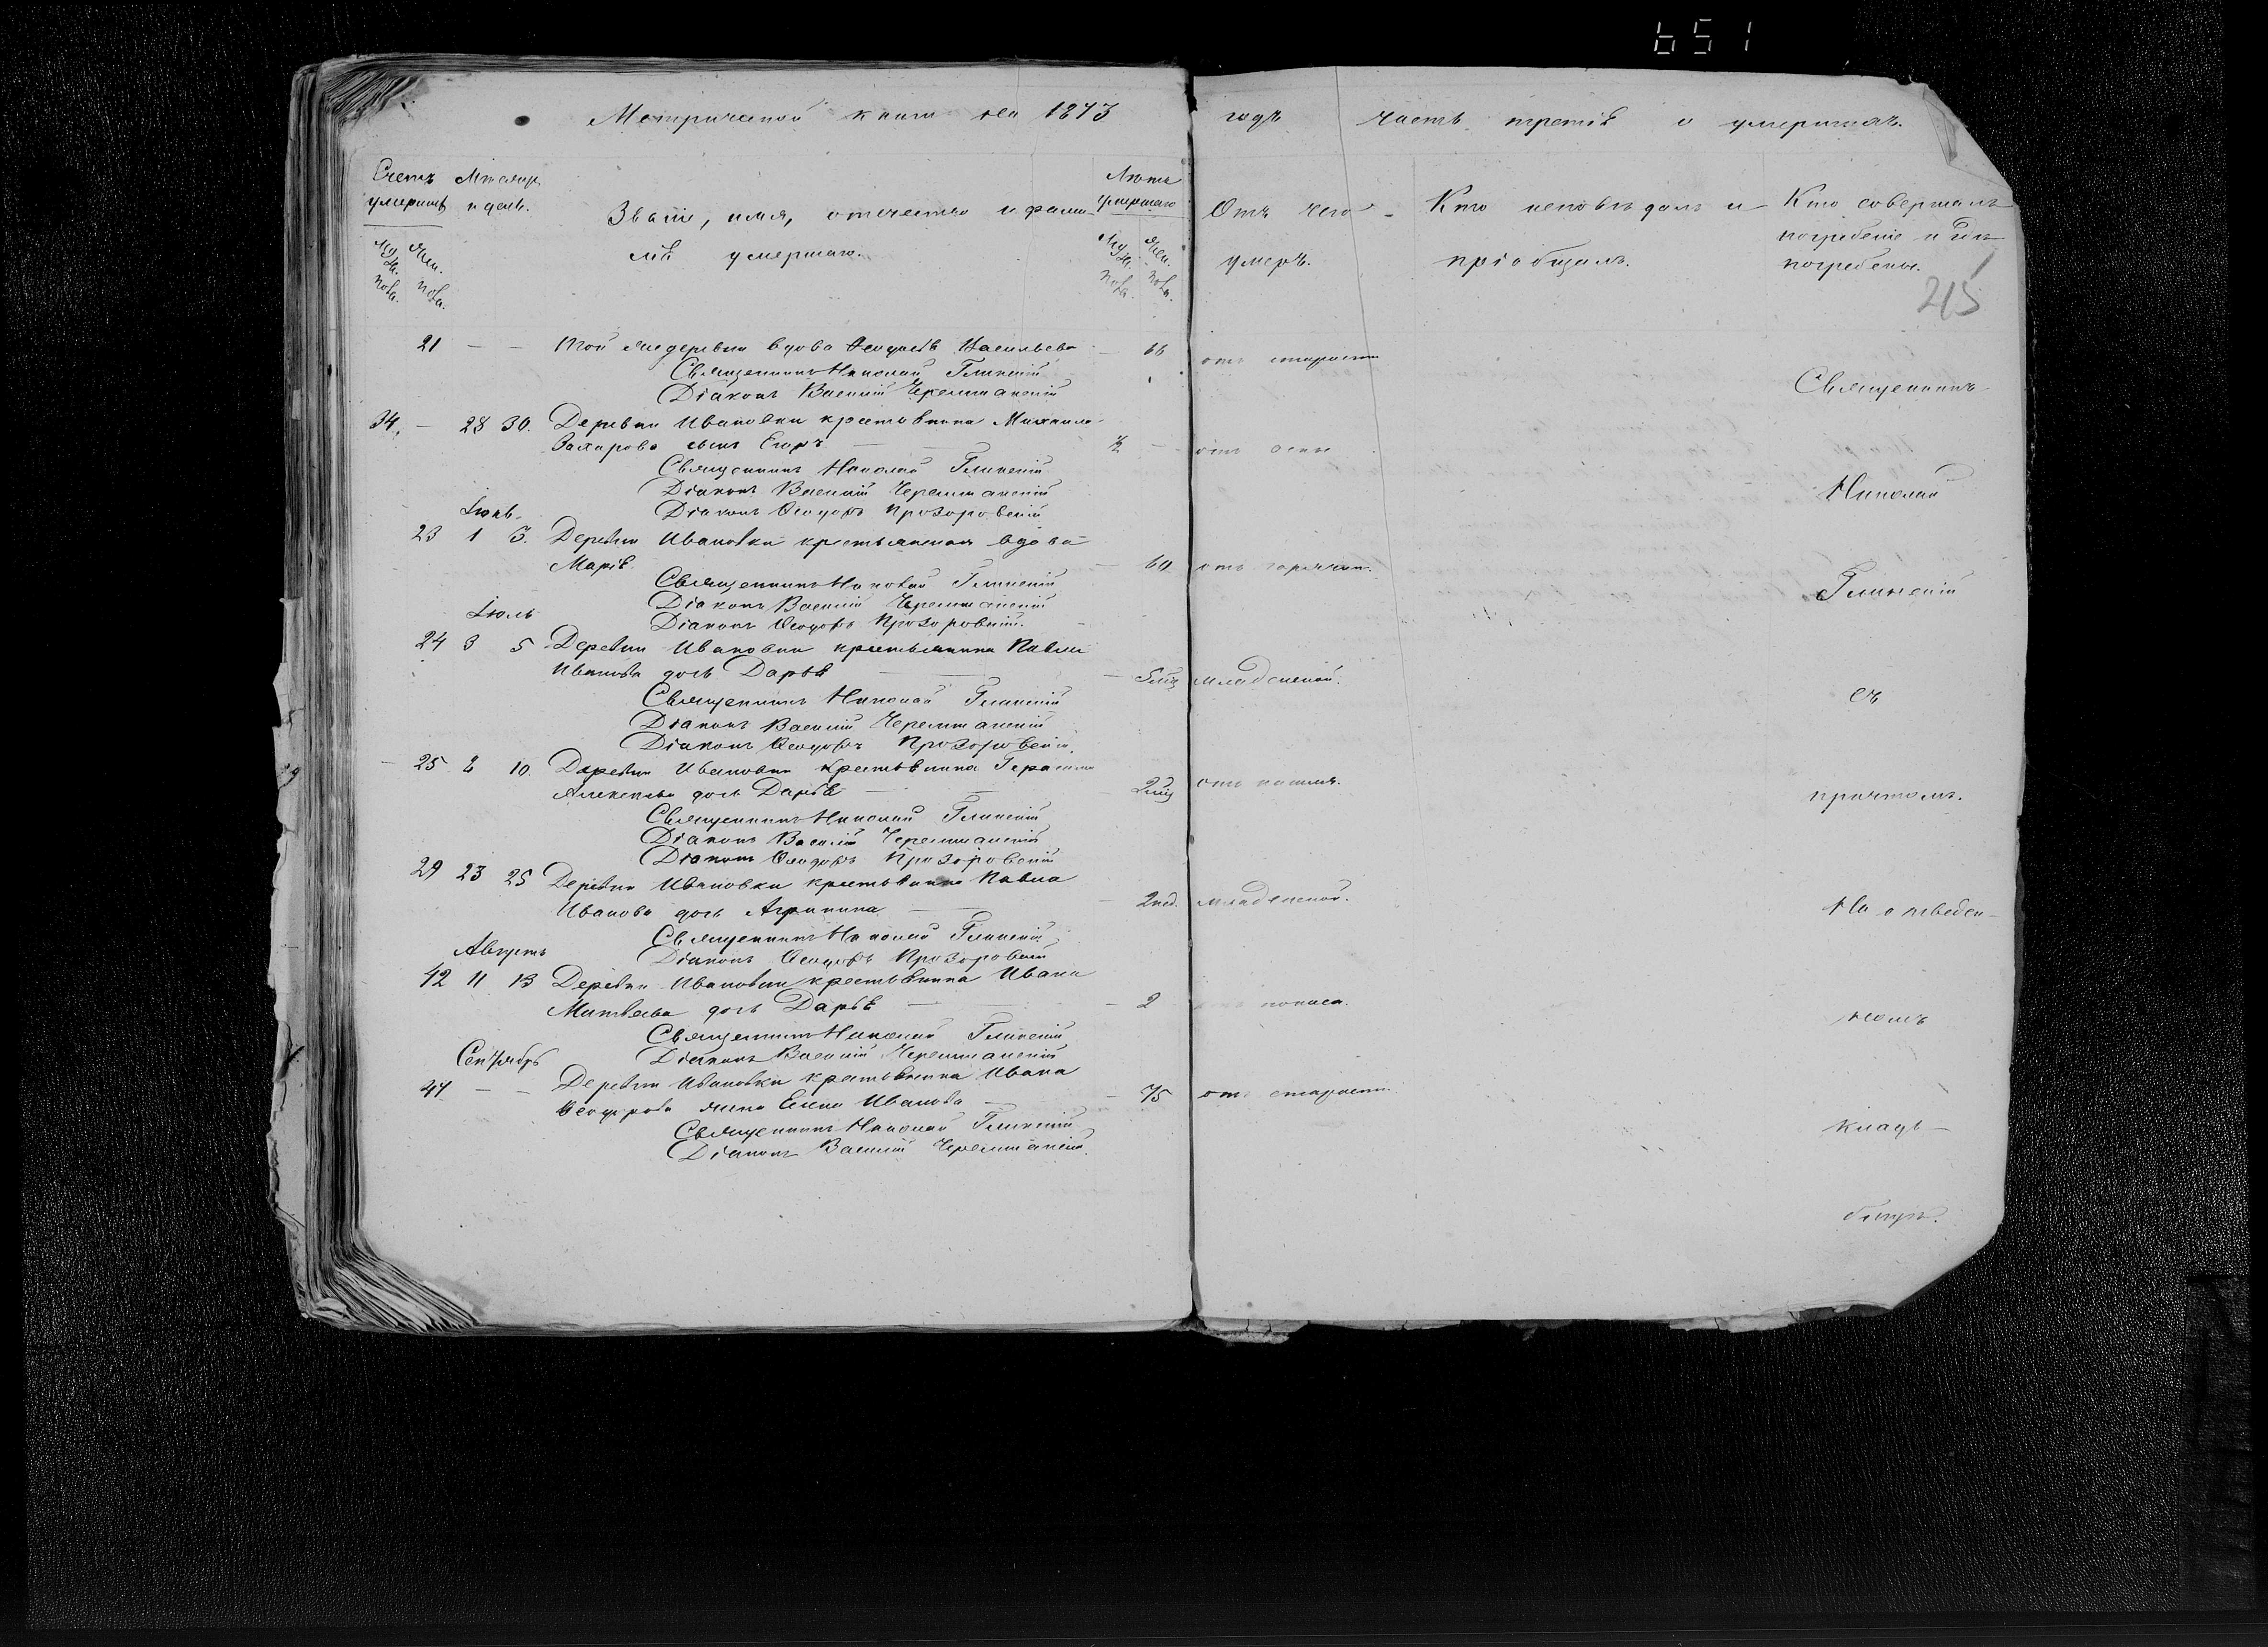 651
Метрической книги на 1873 годъ часть третія о умершихъ.
Счетъ умершихъ
Мѣсяцъ и день.
Званіе, имя, отечество и фами-
лія умершаго.
Лѣта умершаго
Отъ чего
умеръ.
Кто исповѣдалъ и
пріобщалъ.
Кто совершалъ
погребеніе и гдѣ
погребены.
Муж. пола.
Жен. пола.
Муж. пола.
Жен. пола.
215
21 — — Той же деревни вдова Ѳеодосія Васильева 66 отъ старости
Священникъ Николай Глинскій
Діаконъ Василій Черемшанскій
Священникъ
34. — 28 30. Деревни Ивановки крестьянина Михаила
Захарова сынъ Егоръ —
Священникъ Николай Глинскій
Діаконъ Василій Черемшанскій
Діаконъ Ѳеодоръ Прозоровскій
Николай
Іюнь.
23 1 3. Деревни Ивановки крестьянская вдова
Марія — 60 отъ горячки.
Священникъ Николай Глинскій
Діаконъ Василій Черемшанскій
Діаконъ Ѳеодоръ Прозоровскій.
Глинскій
Іюль
24 3 5 Деревни Ивановки крестьянина Павла
Иванова дочь Дарья — 5 мц младенской.
Священникъ Николай Глинскій
Діаконъ Василій Черемшанскій
Діаконъ Ѳеодоръ Прозоровскій.
съ
25 8 10. Деревни Ивановки крестьянина Герасима
Алексѣева дочь Дарья — 2 мц отъ кашля.
Священникъ Николай Глинскій
Діаконъ Василій Черемшанскій
Діаконъ Ѳеодоръ Прозоровскій
причтомъ.
29 23 25 Деревни Ивановки крестьянина Павла
Иванова дочь Агрипина — 2 нед. младенской.
Священникъ Николай Глинскій
Діаконъ Ѳеодоръ Прозоровскій
На отведен-
Августъ
42 11 13 Деревни Ивановки крестьянина Ивана
Матвѣева дочь Дарья — 2 поноса.
Священникъ Николай Глинскій
Діаконъ Василій Черемшанскій
номъ
Сентябрь
47 — — Деревни Ивановки крестьянина Ивана
Ѳеодорова жена Елена Иванова — 75 отъ старости.
Священникъ Николай Глинскій
Діаконъ Василій Черемшанскій.
кладъ-
бищѣ.